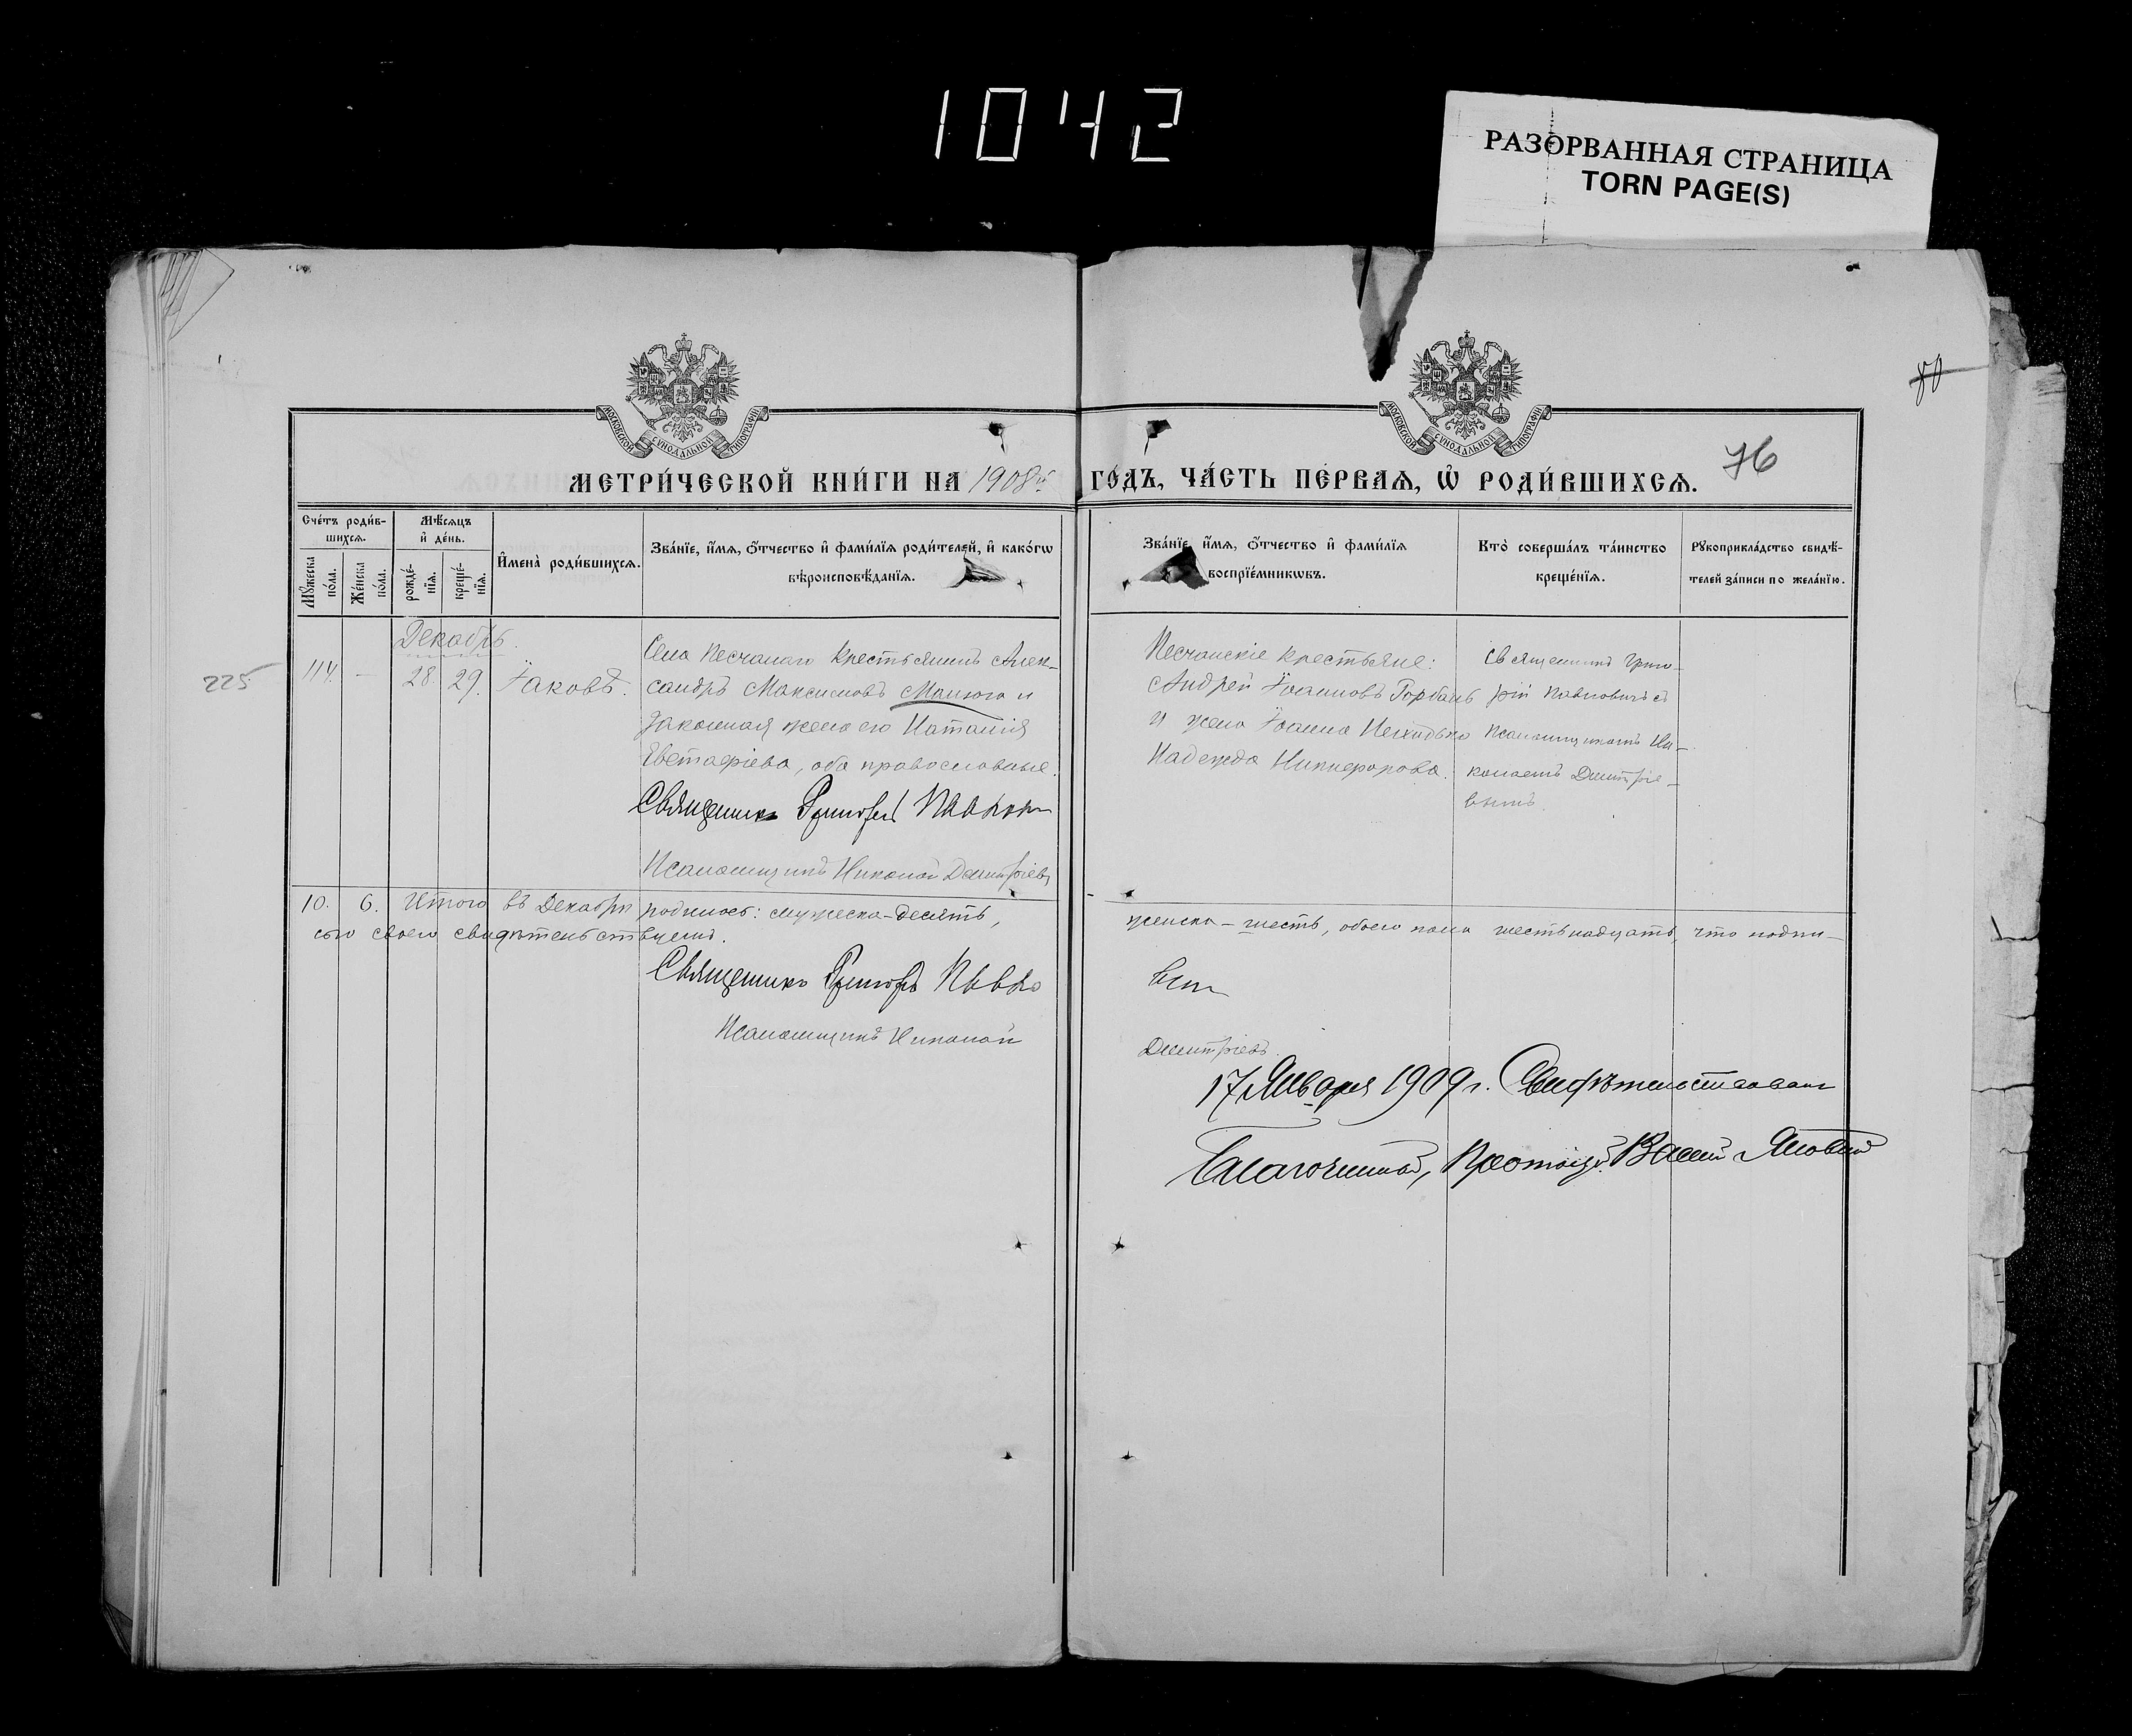 1042
РАЗОРВАННАЯ СТРАНИЦА
TORN PAGE(S)
80
76
МОСКОВСКОЙ СѴНОДАЛЬНОЙ ТИПОГРАФІИ
МОСКОВСКОЙ СѴНОДАЛЬНОЙ ТИПОГРАФІИ
МЕТРИ́ЧЕСКОЙ КНИ́ГИ НА 1908й ГО́ДЪ, ЧА́СТЬ ПЕ́РВАѦ, Ѡ҆ РОДИ́ВШИХСѦ.
Сче́тъ роди́в-
шихсѧ.
Мꙋ́жеска по́ла.
Же́нска по́ла.
Мѣ́сѧцъ
и҆ де́нь.
рожде́-
нїѧ.
креще́-
нїѧ.
И҆мена̀ роди́вшихсѧ.
Зва́нїе, и҆́мѧ, ѻ҆́тчество и҆ фами́лїѧ роди́телей, и҆ како́гѡ
вѣроисповѣ́данїѧ.
Зва́нїе, и҆́мѧ, ѻ҆́тчество и҆ фами́лїѧ
воспрїе́мникѡвъ.
Кто̀ соверша́лъ та́инство
креще́нїѧ.
Рꙋкоприкла́дство свидѣ́-
телей за́писи по жела́нїю.
Декабрь.
225
114. — 28. 29. Іаковъ.
Села Песчанаго крестьянинъ Алек-
сандръ Максимовъ Манюга и
законная жена его Наталія
Евстафіева, оба православные.
Священникъ Григорій Павлович
Псаломщикъ Николай Димитріевъ
Песчанскіе крестьяне:
Андрей Іоанновъ Горбань
и жена Іоанна
Надежда Никифорова.
Священникъ Григо-
рій Павловичъ съ
псаломщикомъ Ни-
колаемъ Димитріе-
вымъ.
10. 6. Итого въ Декабрѣ родилось: мужеска - десять,
женска - шесть, обоего пола шестнадцать, что подпи-
сью своею свидѣтельствуемъ.
Священникъ Григорій Павло
вич
Псаломщикъ Николай
Димитріевъ.
17 Января 1909 г. Свидѣтельствовалъ
Благочинный, Протоіер.